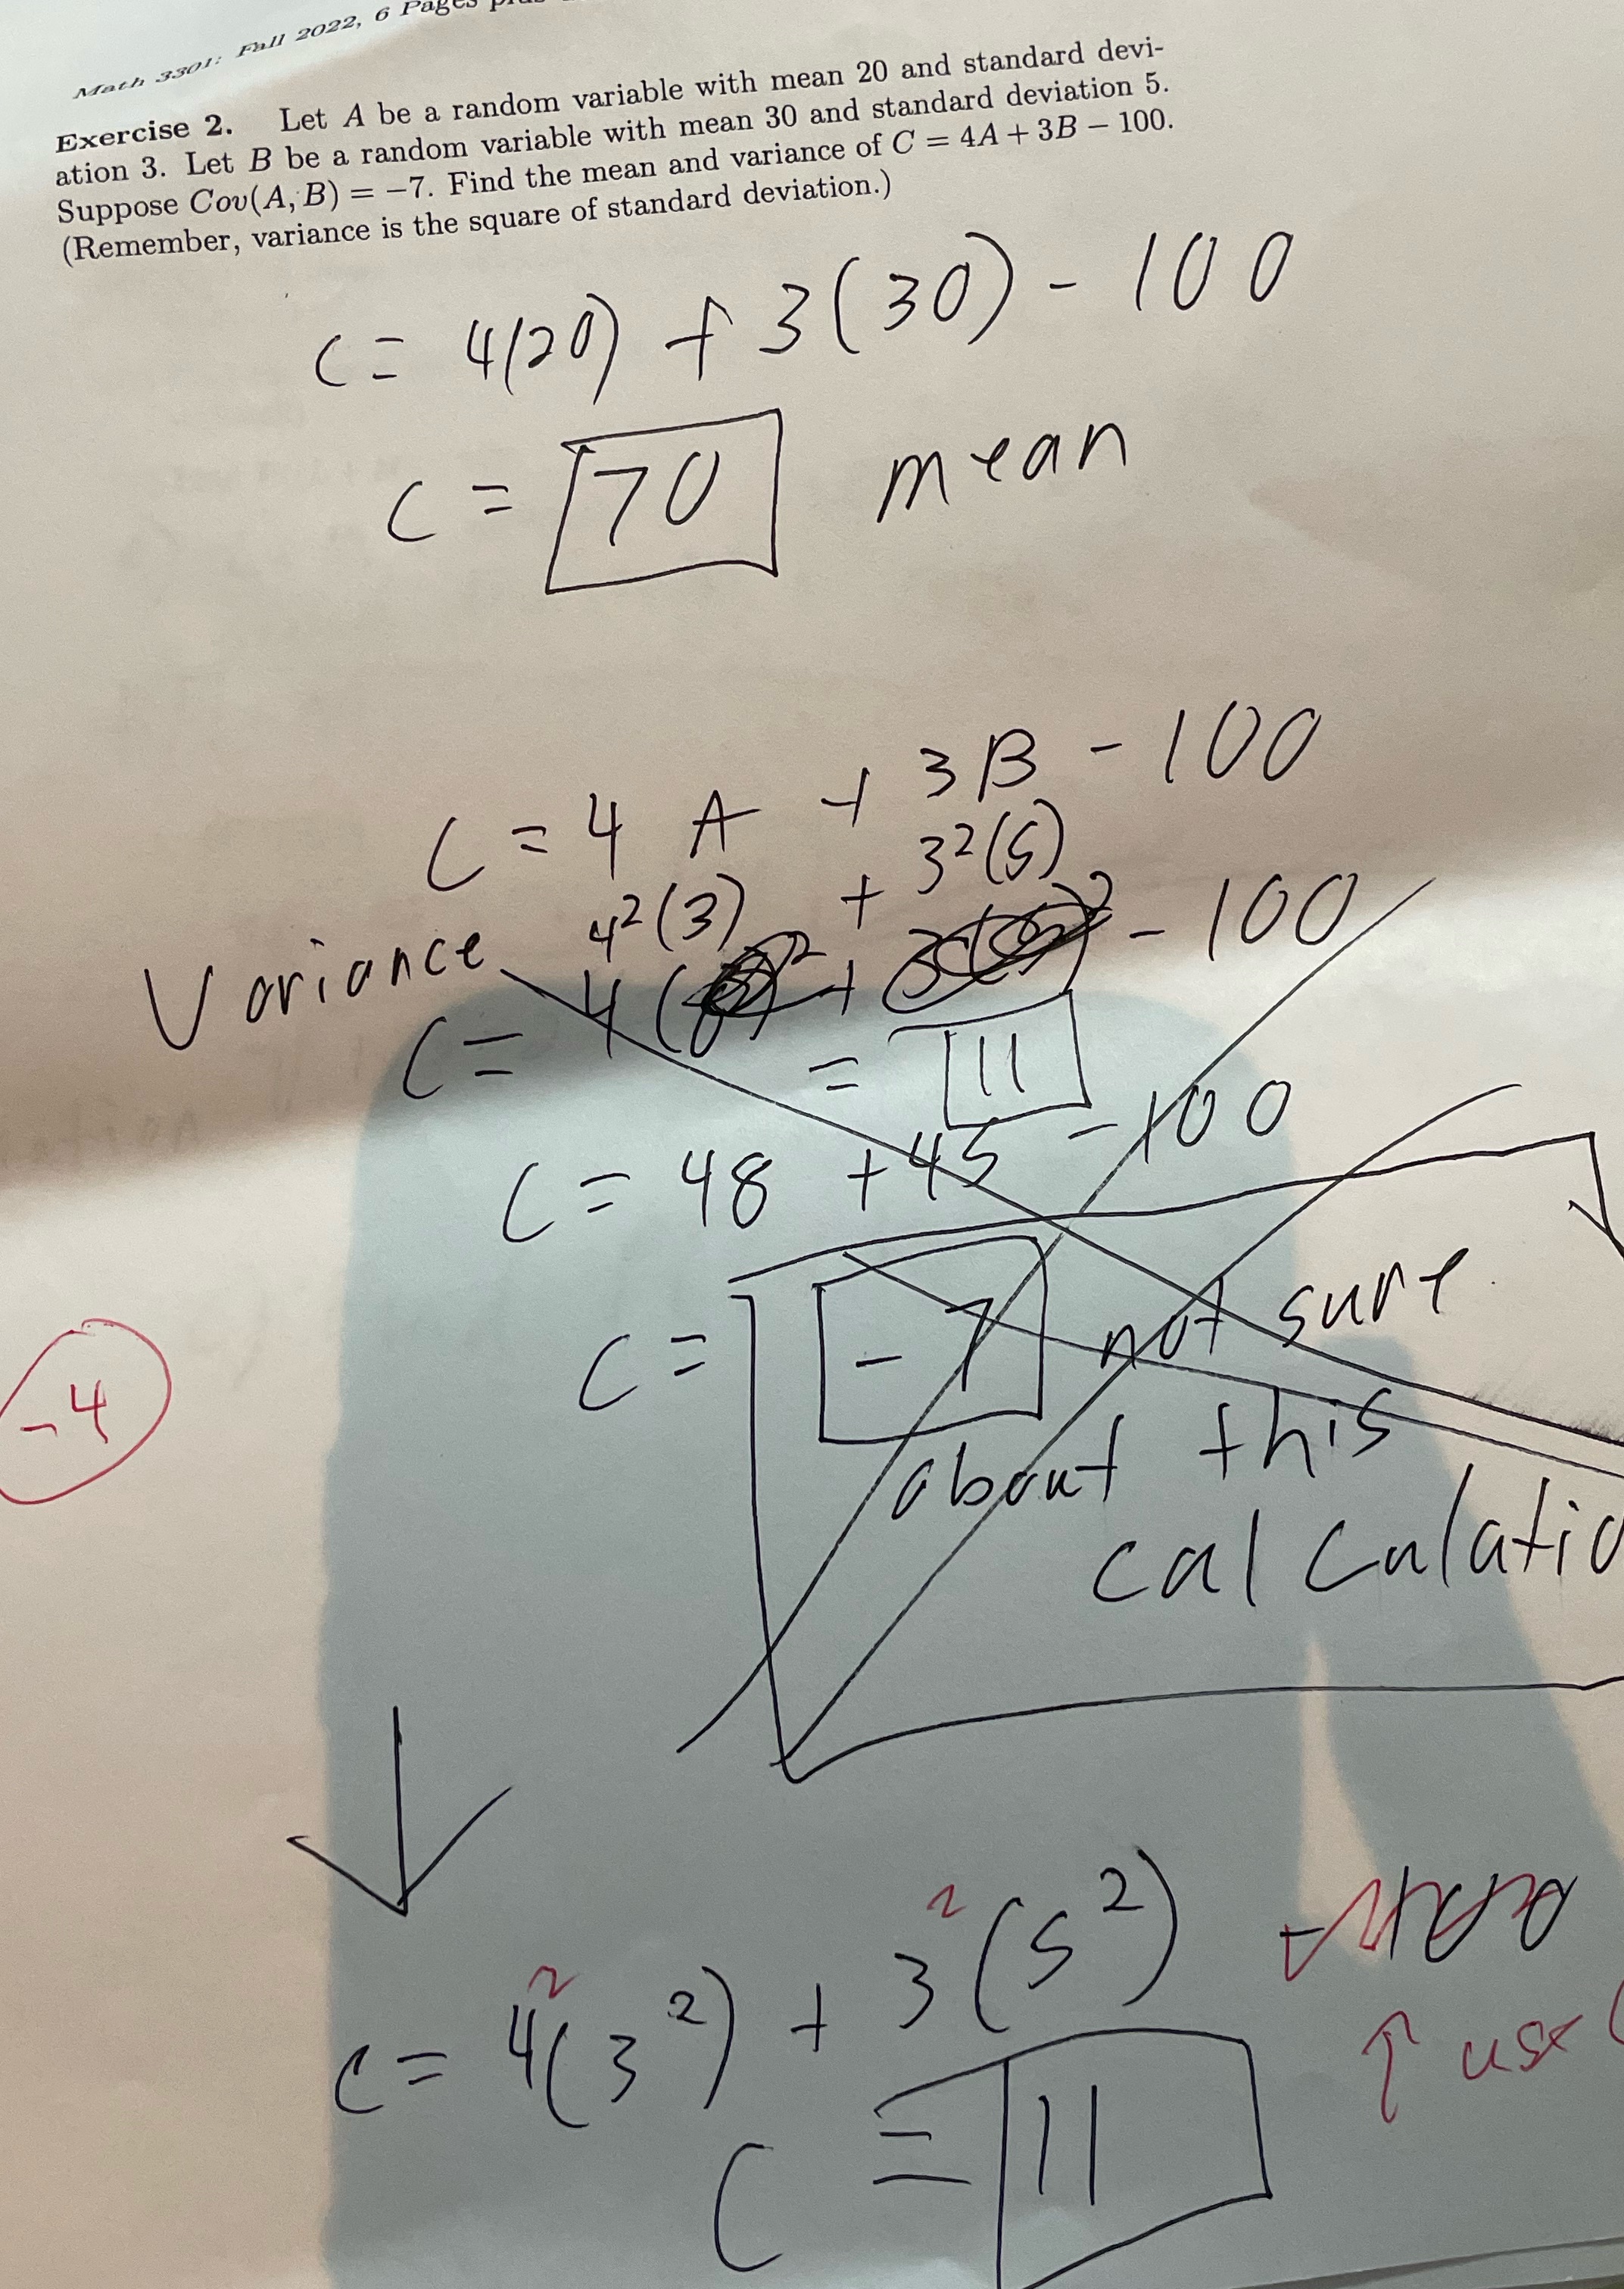 Math 3301: Fall 2022, 6 Pages
Exercise 2. Let A be a random variable with mean 20 and standard devi-
ation 3. Let B be a random variable with mean 30 and standard deviation 5.
Suppose Cov(A, B) = −7. Find the mean and variance of C = 4A + 3B − 100.
(Remember, variance is the square of standard deviation.)
C = 4(20) + 3(30) - 100
C = 70 mean
C = 4 A + 3B - 100
4²(3) + 3²(5)
Variance
C = 4( )² + 3( )² - 100
= 11
C = 48 + 45 - 100
C = -7 not sure
about this
-4
C = 4²(3²) + 3²(5²) - 100
↑ use
C = 11